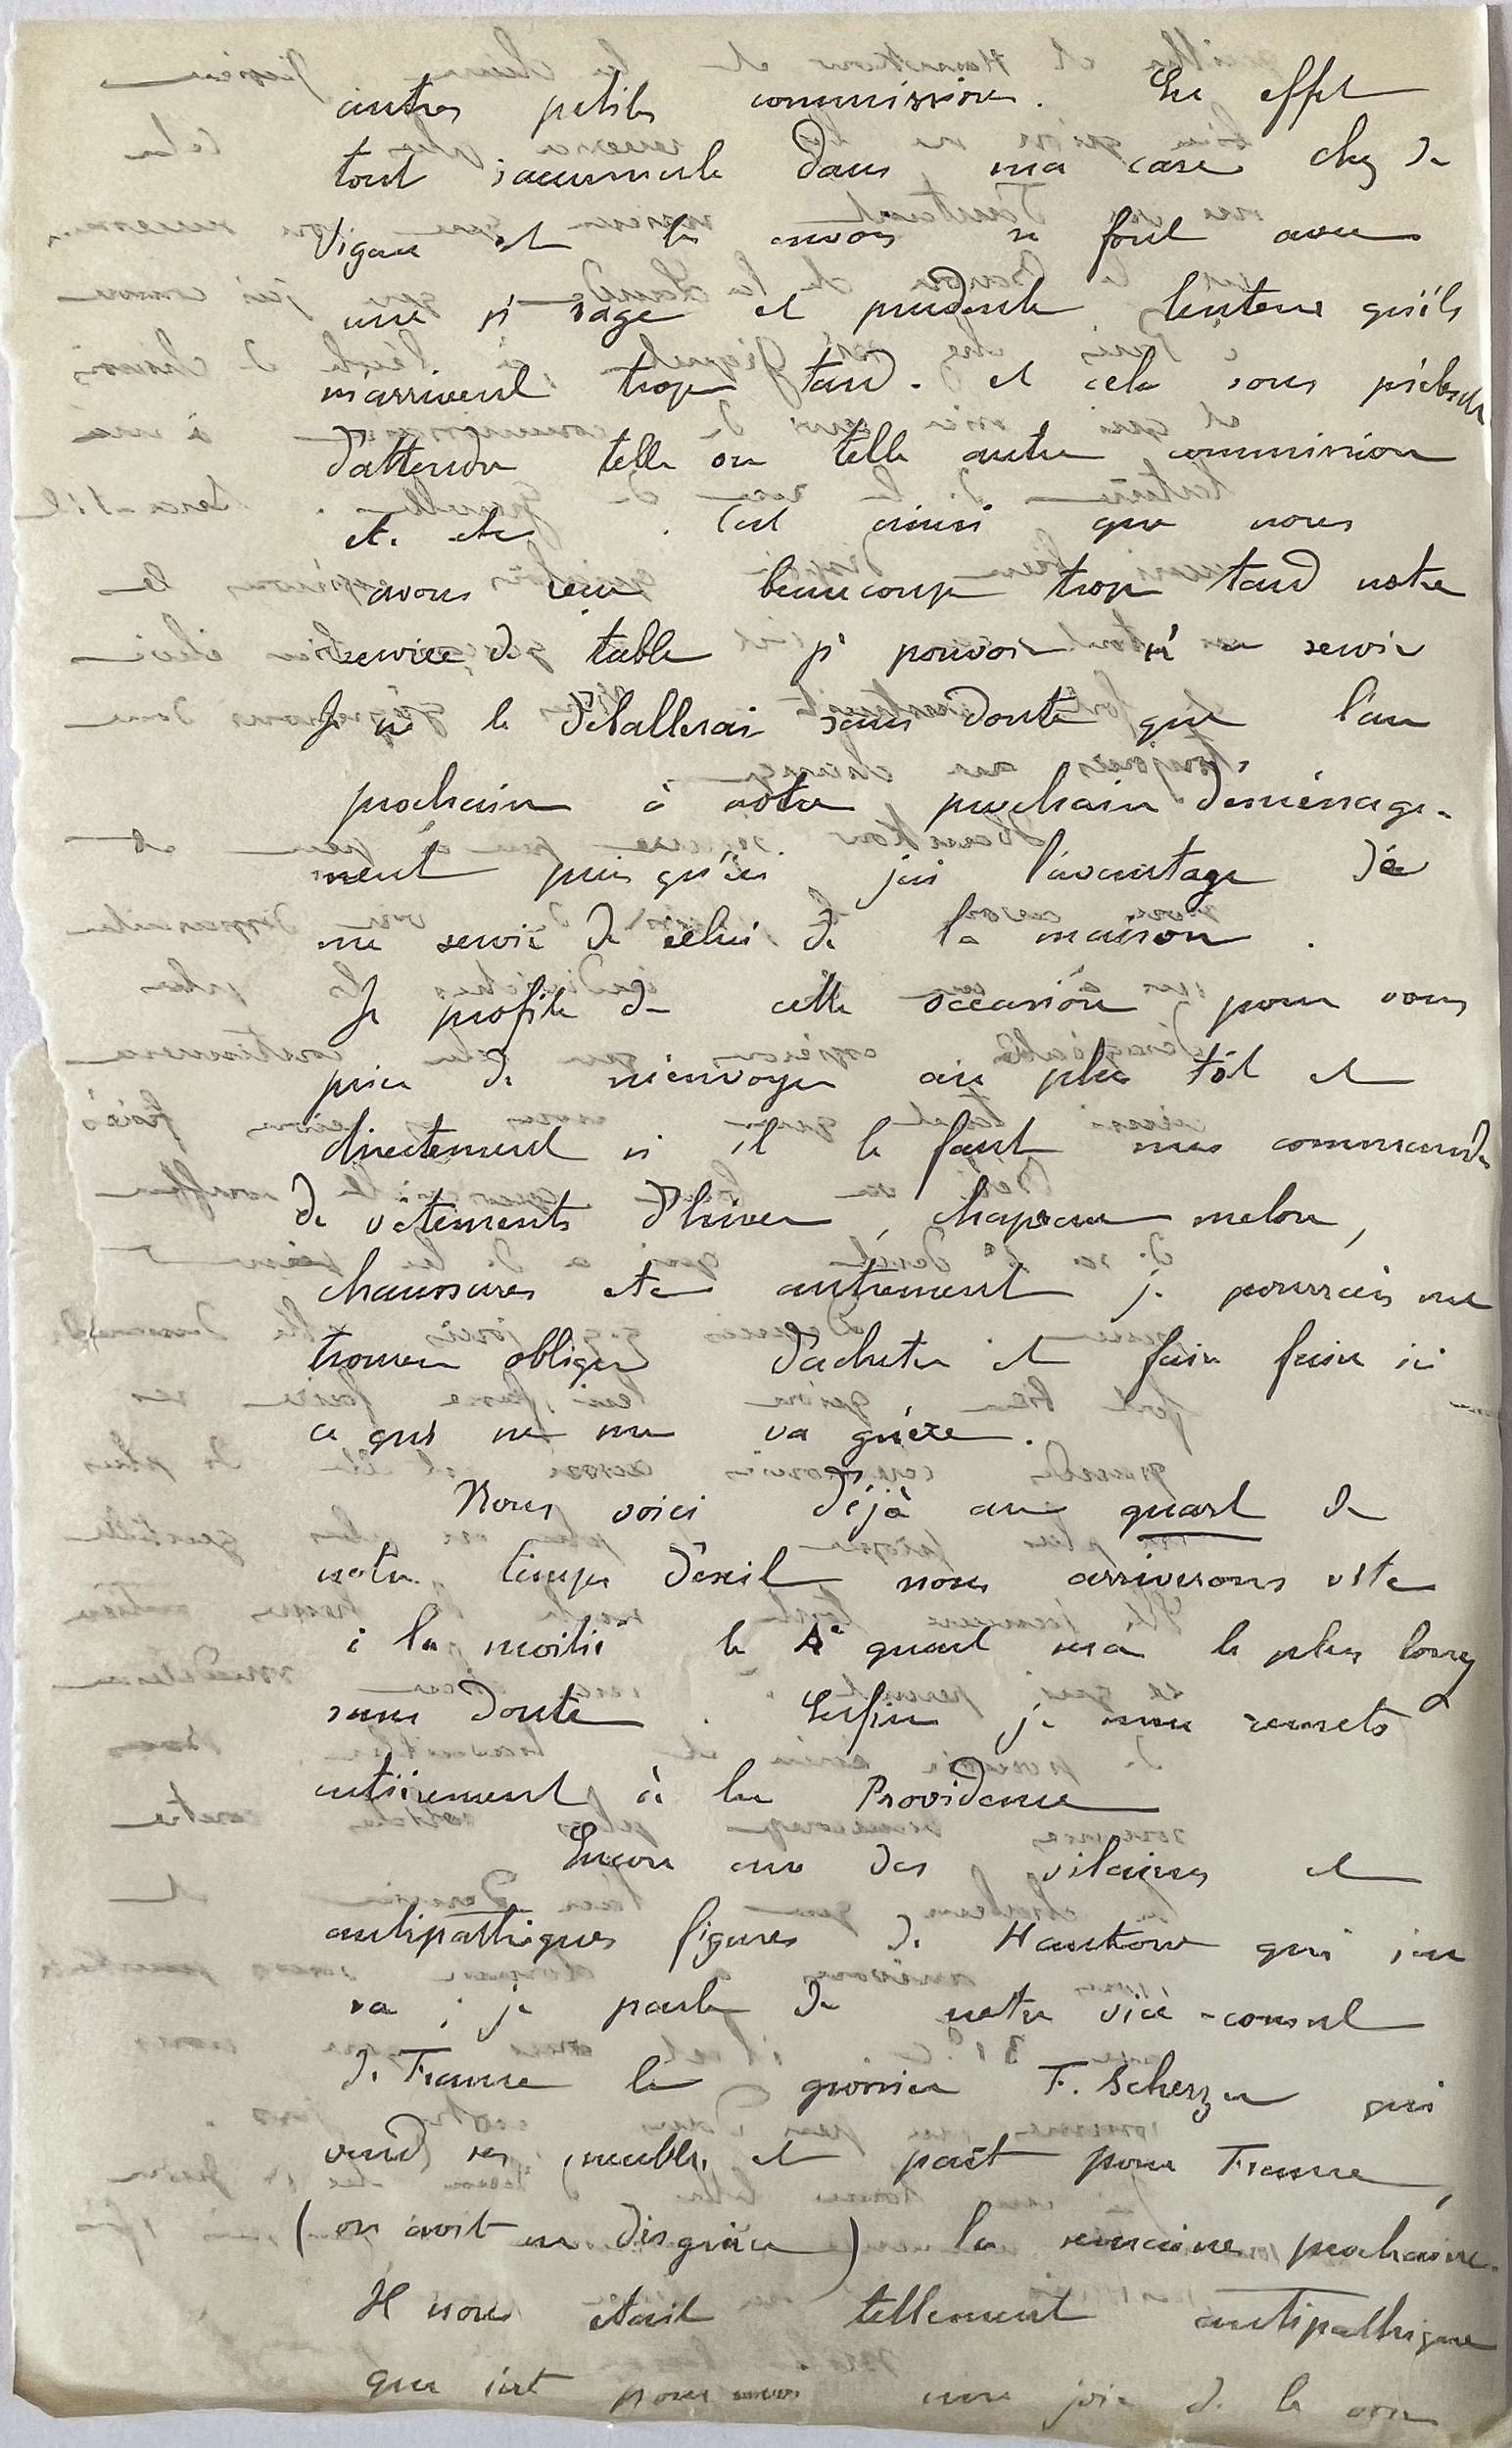 autres petites commissions. En effet
tout s'accumule dans ma case chez de
Vigan et les envois se font avec
une si sage et prudente lenteur qu'ils
m'arrivent trop tard. et cela sous prétexte
d'attendre telle ou telle autre commission
et. etc. C'est ainsi que nous
avons reçu beaucoup trop tard notre
service de table pr pouvoir s'en servir
Je ne le déballerai sans doute que l'an
prochain à notre prochain déménage-
ment puis qu'ici j'ai l'avantage de
me servir de celui de la maison.
Je profite de cette occasion pour vous
prier de m'envoyer au plus tôt et
directement si il le faut mes commandes
de vêtements d'hiver, chapeau melon,
chaussures etc autrement je pourrais me
trouver obligé d'acheter et faire faire ici
ce qui ne me va guère.
Nous voici déjà au quart de
notre temps d'exil nous arriverons vite
à la moitié le 4e quart sera le plus long
sans doute. Enfin je me remets
entièrement à la Providence
Encore une des vilaines et
antipathiques figures de Hankow qui s'en
va; je parle de notre vice-consul
de France le grossier F. Scherzer qui
vend ses meubles et part pour France,
(on croit en disgrâce) la semaine prochaine.
Il nous était tellement antipathique
que c'est pour nous une joie de le voir